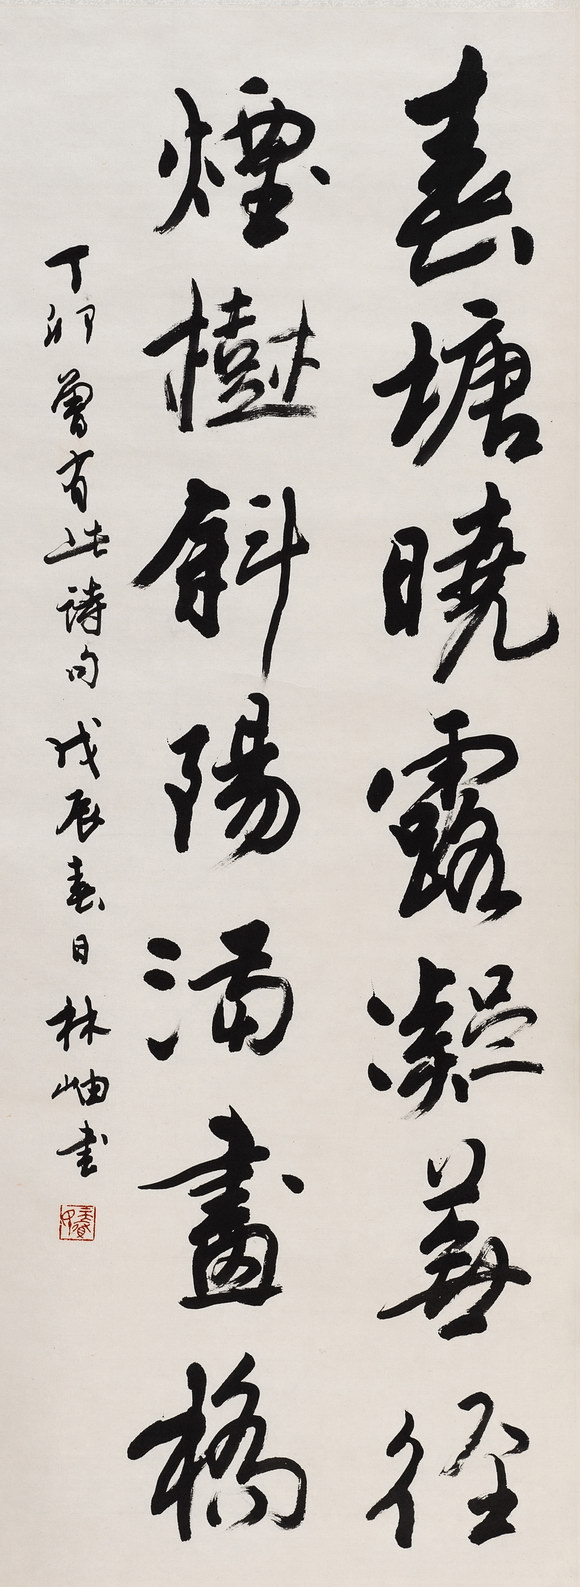 春塘曉露凝蕪徑
煙樹斜陽滿畫橋
丁卯曾有此詩句戊辰春日林岫書